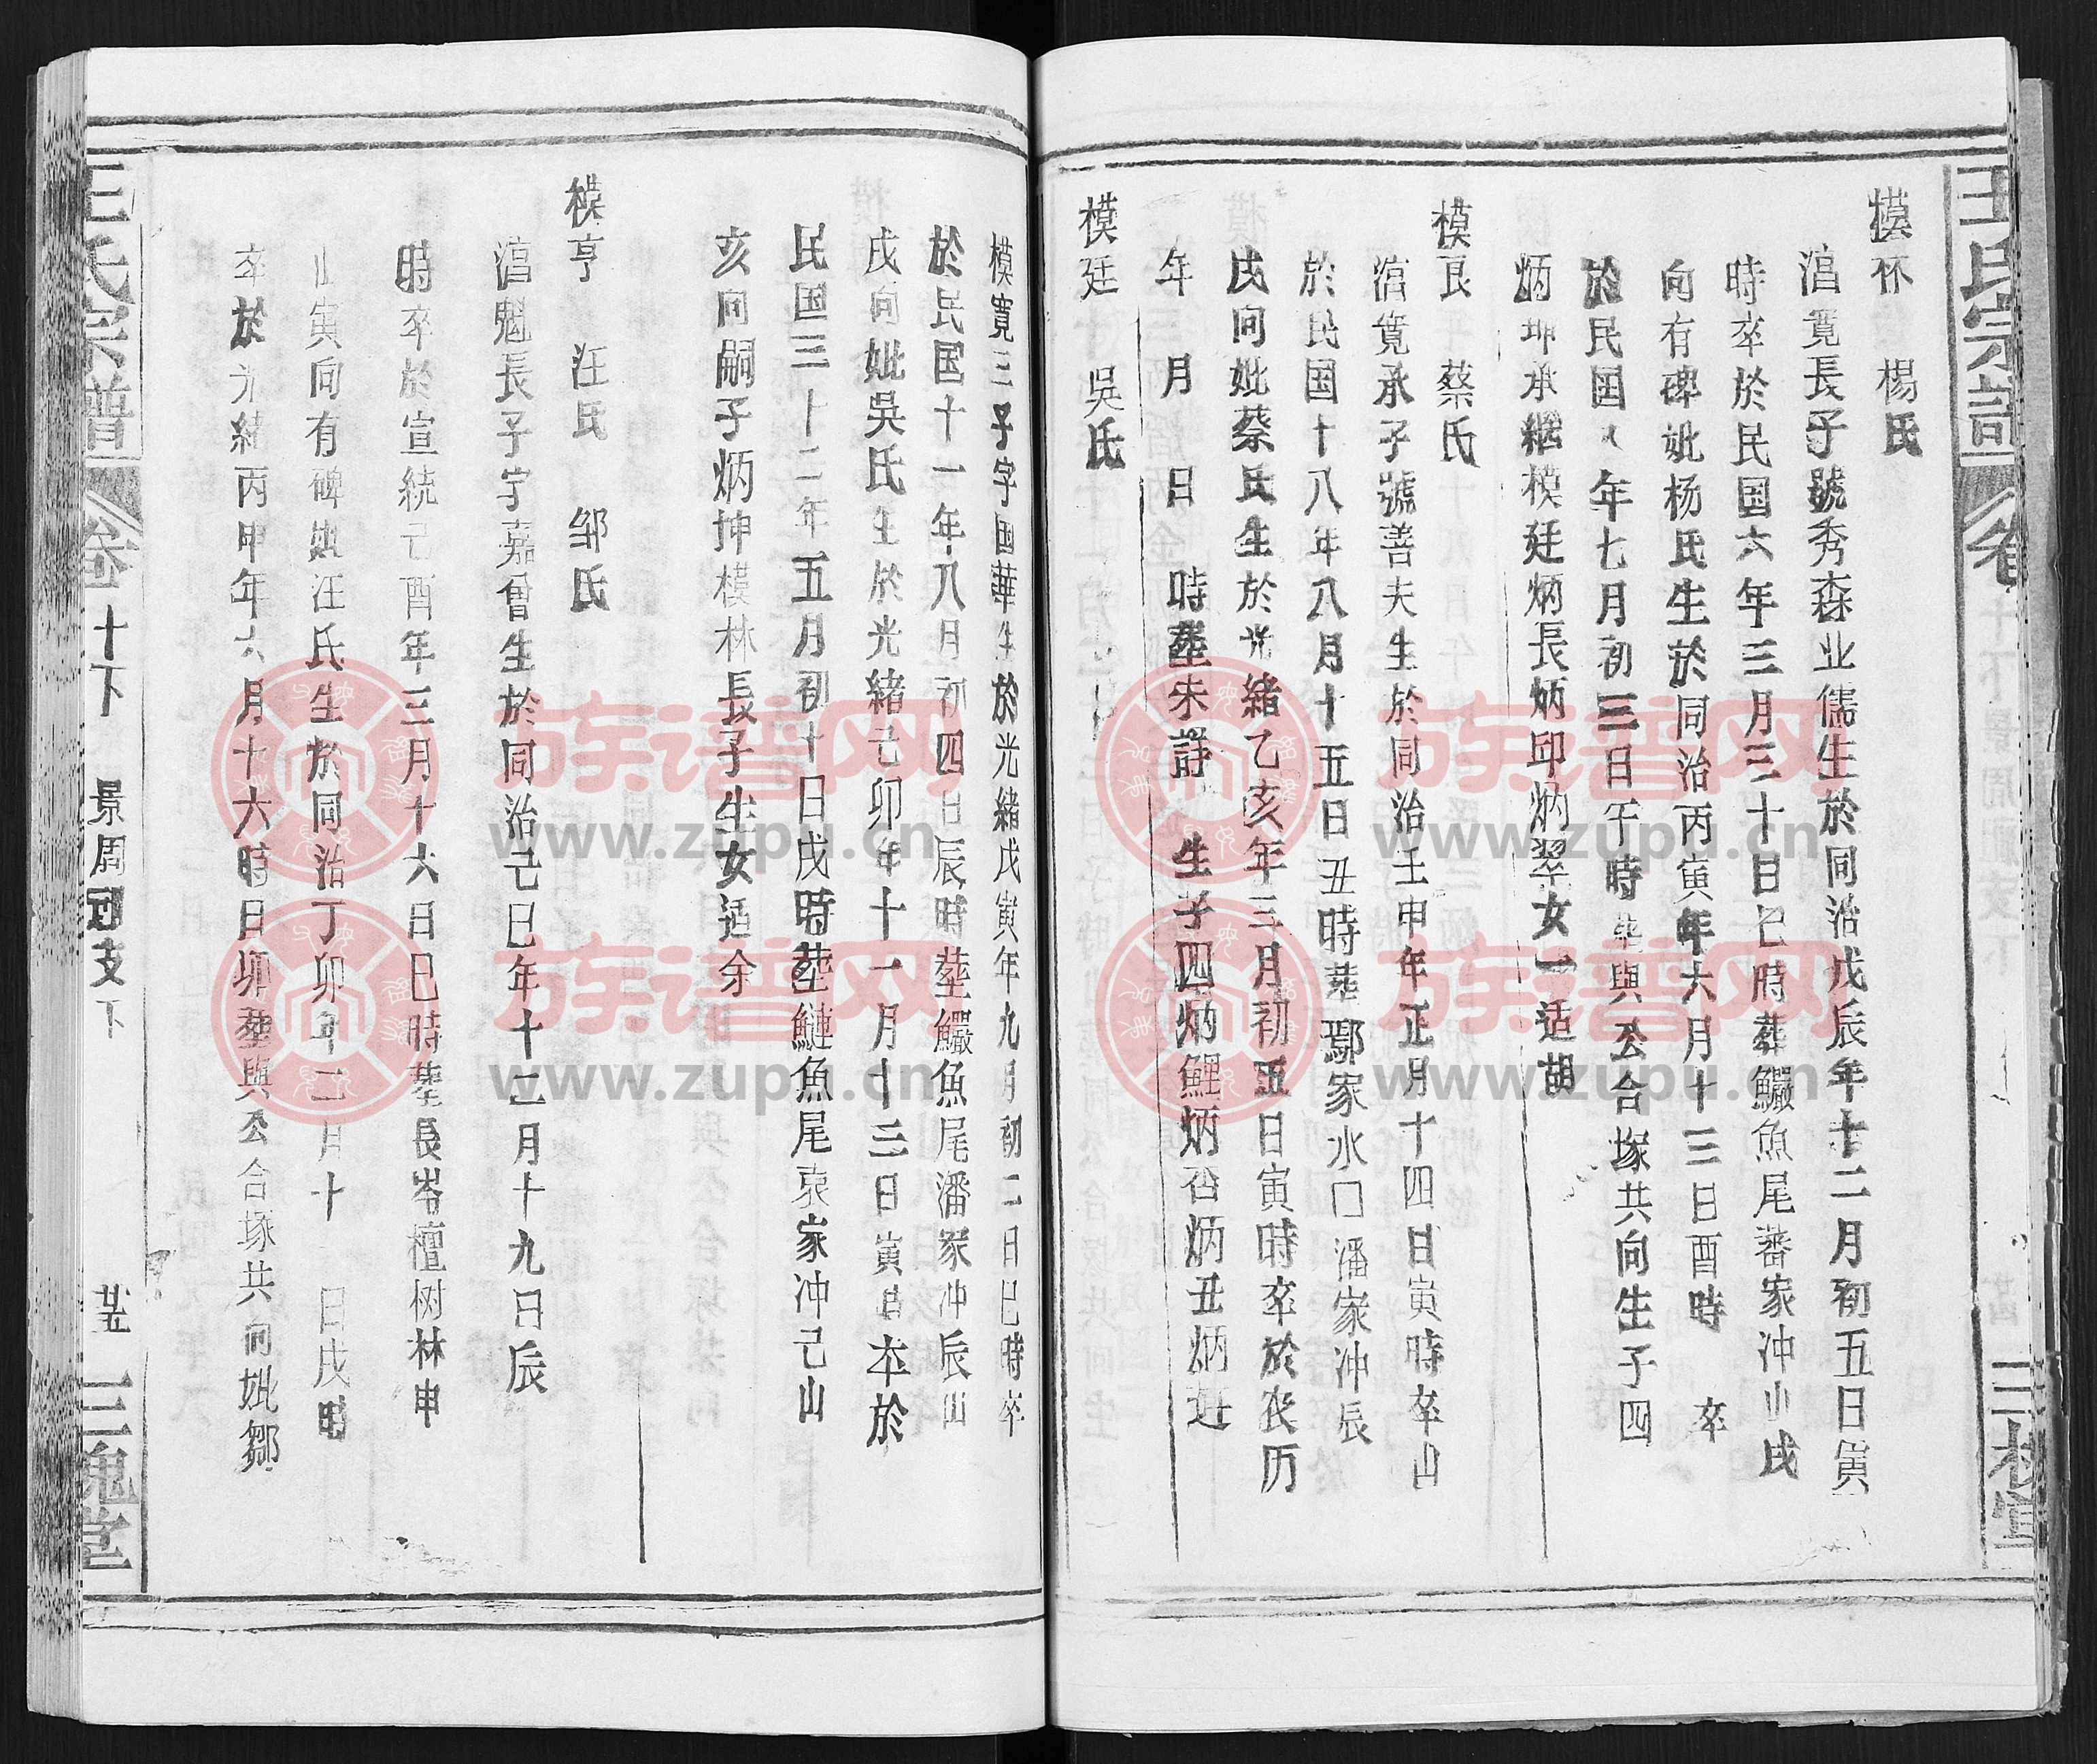 王氏宗譜
卷
三槐堂
模林 楊氏
湻寬長子號秀森业儒生於同治戊辰年十二月初五日寅
時卒於民国六年三月三十日巳時葬鱺魚尾蕃家冲山戌
向有碑妣杨氏生於同治丙寅年六月十三日酉時 卒
於民国 年七月初三日午時塟與公合塚共向生子四
炳坤承継模廷炳長炳印炳翠女一适胡
模艮 蔡氏
湻寬承子號善夫生於同治壬申年正月十四日寅時卒
於民国十八年八月十五日丑時塟鄢家水口潘家冲辰山
戌向妣蔡氏生於光緒乙亥年三月初五日寅時卒於农历
年 月 日 時塟未詳 生子四炳鯉炳杏炳丑炳
模廷 吳氏
模寬三子字國華生於光緒戊寅年九月初二日巳時卒
於民国十一年八月初四日辰時塟鱺魚尾潘家冲辰山
戌向妣吳氏生於光緒己卯年十一月十三日寅時卒於
民国三十二年五月初十日戌時塟鰱魚尾袁家冲己山
亥向嗣子炳坤模林長子生女适余
模亨 汪氏 邹氏
湻魁長子字嘉會生於同治己巳年十二月十九日辰
時卒於宣統己酉年三月十六日巳時塟長岑檀树林申
山寅向有碑妣汪氏生於同治丁卯年二月十一日戌時
卒於光緒丙申年六月十六時日卯塟與公合塚共向妣鄒
王氏宗譜
卷十下
景周冠支下
廿五
三槐堂
族谱网
www.zupu.cn
族谱网
www.zupu.cn
族谱网
www.zupu.cn
族谱网
www.zupu.cn